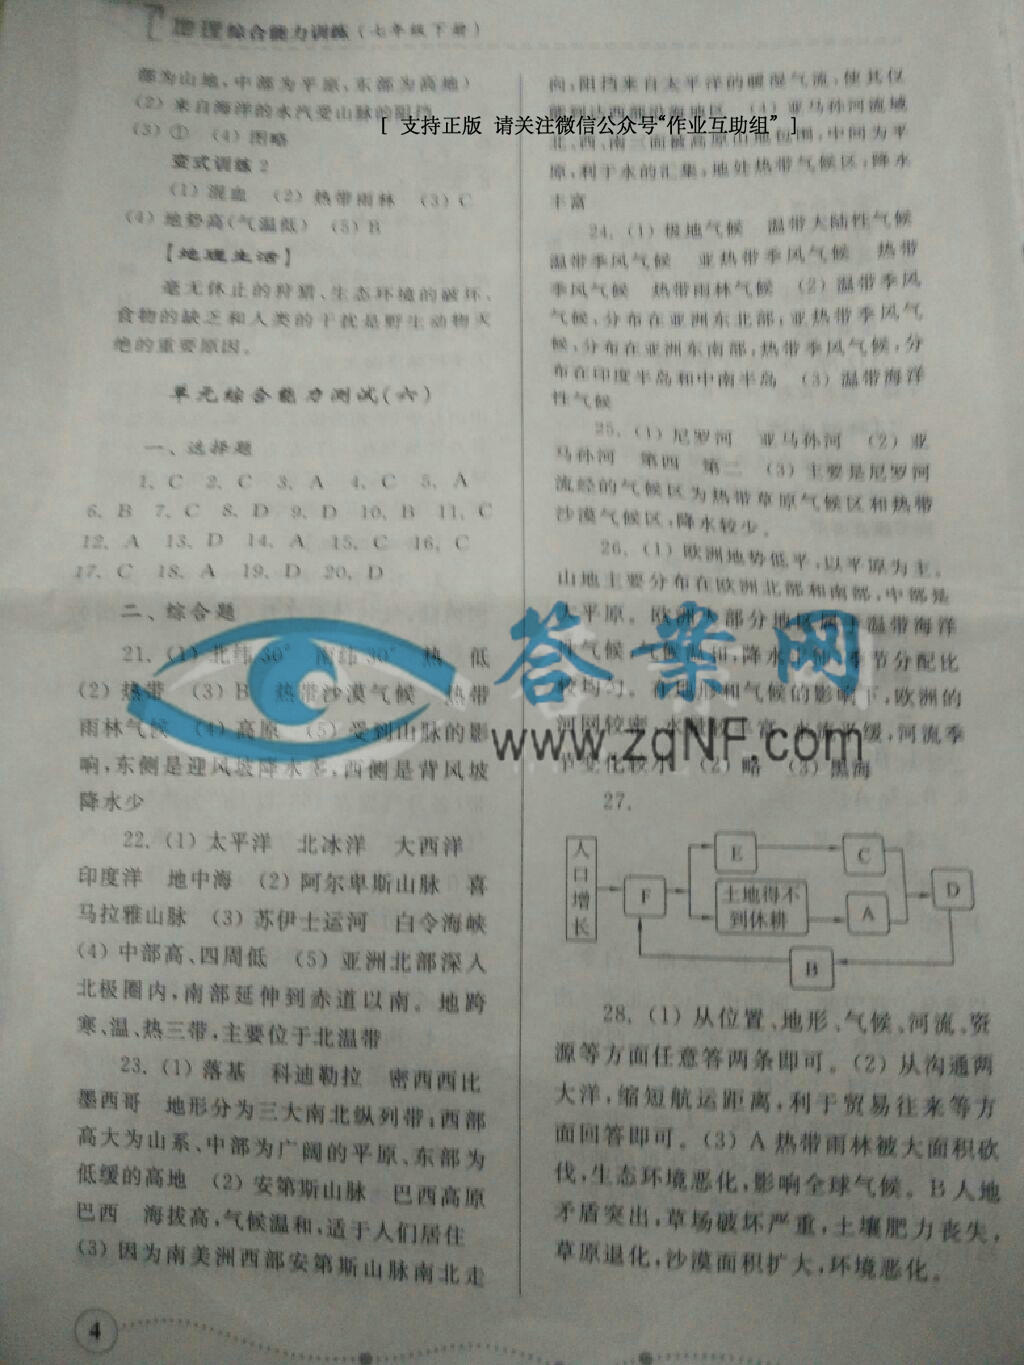 地理综合能力训练(七年级下册)
部为山地、中部为平原、东部为高地)
(2) 来自海洋的水汽受山脉的阻挡
(3) ① (4) 图略
变式训练2
(1) 混血 (2) 热带雨林 (3) C
(4) 地势高(气温低) (5) B
【地理生活】
毫无休止的狩猎、生态环境的破坏、
食物的缺乏和人类的干扰是野生动物灭
绝的重要原因。
单元综合能力测试(六)
一、选择题
1. C 2. C 3. A 4. C 5. A
6. B 7. C 8. D 9. D 10. B 11. C
12. A 13. D 14. A 15. C 16. C
17. C 18. A 19. D 20. D
二、综合题
21. (1) 北纬30° 南纬30° 热 低
(2) 热带 (3) B 热带沙漠气候 热带
雨林气候 (4) 高原 (5) 受到山脉的影
响,东侧是迎风坡降水多,西侧是背风坡
降水少
22. (1) 太平洋 北冰洋 大西洋
印度洋 地中海 (2) 阿尔卑斯山脉 喜
马拉雅山脉 (3) 苏伊士运河 白令海峡
(4) 中部高、四周低 (5) 亚洲北部深入
北极圈内,南部延伸到赤道以南。地跨
寒、温、热三带,主要位于北温带
23. (1) 落基 科迪勒拉 密西西比
墨西哥 地形分为三大南北纵列带:西部
高大为山系、中部为广阔的平原、东部为
低缓的高地 (2) 安第斯山脉 巴西高原
巴西 海拔高,气候温和,适于人们居住
(3) 因为南美洲西部安第斯山脉南北走
向,阻挡来自太平洋的暖湿气流,使其仅
能到达西部沿海地区 (4) 亚马孙河流域
[ 支持正版 请关注微信公众号“作业互助组” ]
北、西、南三面被高原山地包围,中间为平
原,利于水的汇集;地处热带气候区,降水
丰富
24. (1) 极地气候 温带大陆性气候
温带季风气候 亚热带季风气候 热带
季风气候 热带雨林气候 (2) 温带季风
气候,分布在亚洲东北部;亚热带季风气
候,分布在亚洲东南部;热带季风气候,分
布在印度半岛和中南半岛 (3) 温带海洋
性气候
25. (1) 尼罗河 亚马孙河 (2) 亚
马孙河 第四 第二 (3) 主要是尼罗河
流经的气候区为热带草原气候区和热带
沙漠气候区,降水较少。
26. (1) 欧洲地势低平,以平原为主。
山地主要分布在欧洲北部和南部,中部是
大平原。欧洲大部分地区属于温带海洋
性气候,气候温和,降水 季节分配比
较均匀。在地形和气候的影响下,欧洲的
河网较密,水量较丰富,水流平缓,河流季
节变化较小 (2) 略 (3) 黑海
答案网
www.zqNF.com
27.
人口增长
F
E
C
土地得不
到休耕
A
D
B
28. (1) 从位置、地形、气候、河流、资
源等方面任意答两条即可。(2) 从沟通两
大洋,缩短航运距离,利于贸易往来等方
面回答即可。(3) A 热带雨林被大面积砍
伐,生态环境恶化,影响全球气候。B 人地
矛盾突出,草场破坏严重,土壤肥力丧失,
草原退化,沙漠面积扩大,环境恶化。
4